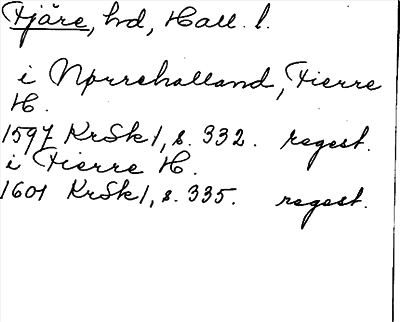 Fjäre, hd, Hall. l.
i Nørrehalland, Fierre
H.
1597 KrSk1, s. 332. regest.
i Fierre H.
1601 KrSk1, s. 335. regest.